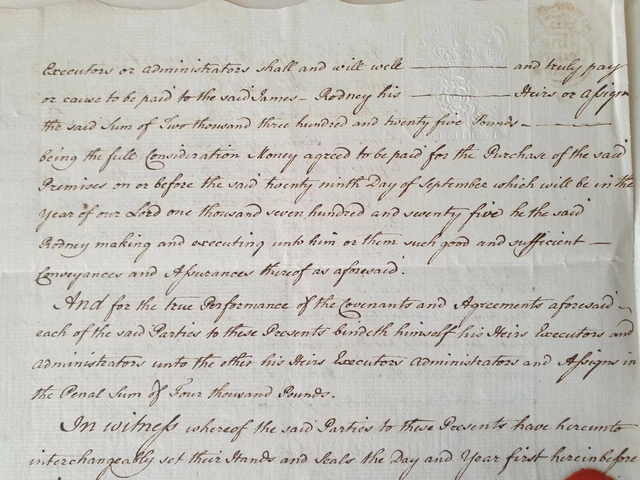 Executors or administrators shall and will well ———— and truly pay
or cause to be paid to the said James — Rodney his ———— Heirs or Assign
the said Sum of Two thousand three hundred and twenty five Pounds — ————
being the full Consideration Money agreed to be paid for the Purchase of the said
Premises on or before the said twenty ninth Day of September which will be in the
year of our Lord one thousand seven hundred and seventy five he the said
Rodney making and executing unto him or them such good and sufficient —
Conveyances and Assurances thereof as aforesaid.
And for the true Performance of the Covenants and Agreements aforesaid —
each of the said Parties to these Presents bindeth himself his Heirs Executors and
administrators unto the other his Heirs Executors Administrators and Assigns in
the Penal Sum of Four thousand Pounds.
In witness whereof the said Parties to these Presents have hereunto
interchangeably set their Hands and Seals the Day and Year first hereinbefore